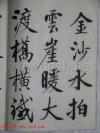 金沙水拍
雲崖暖大
渡橋橫鐵